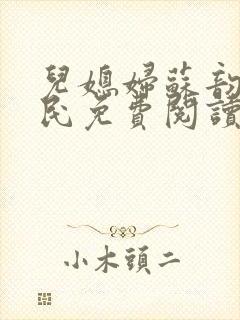 兒媳婦蘇韵
民免費閱讀
小木頭二